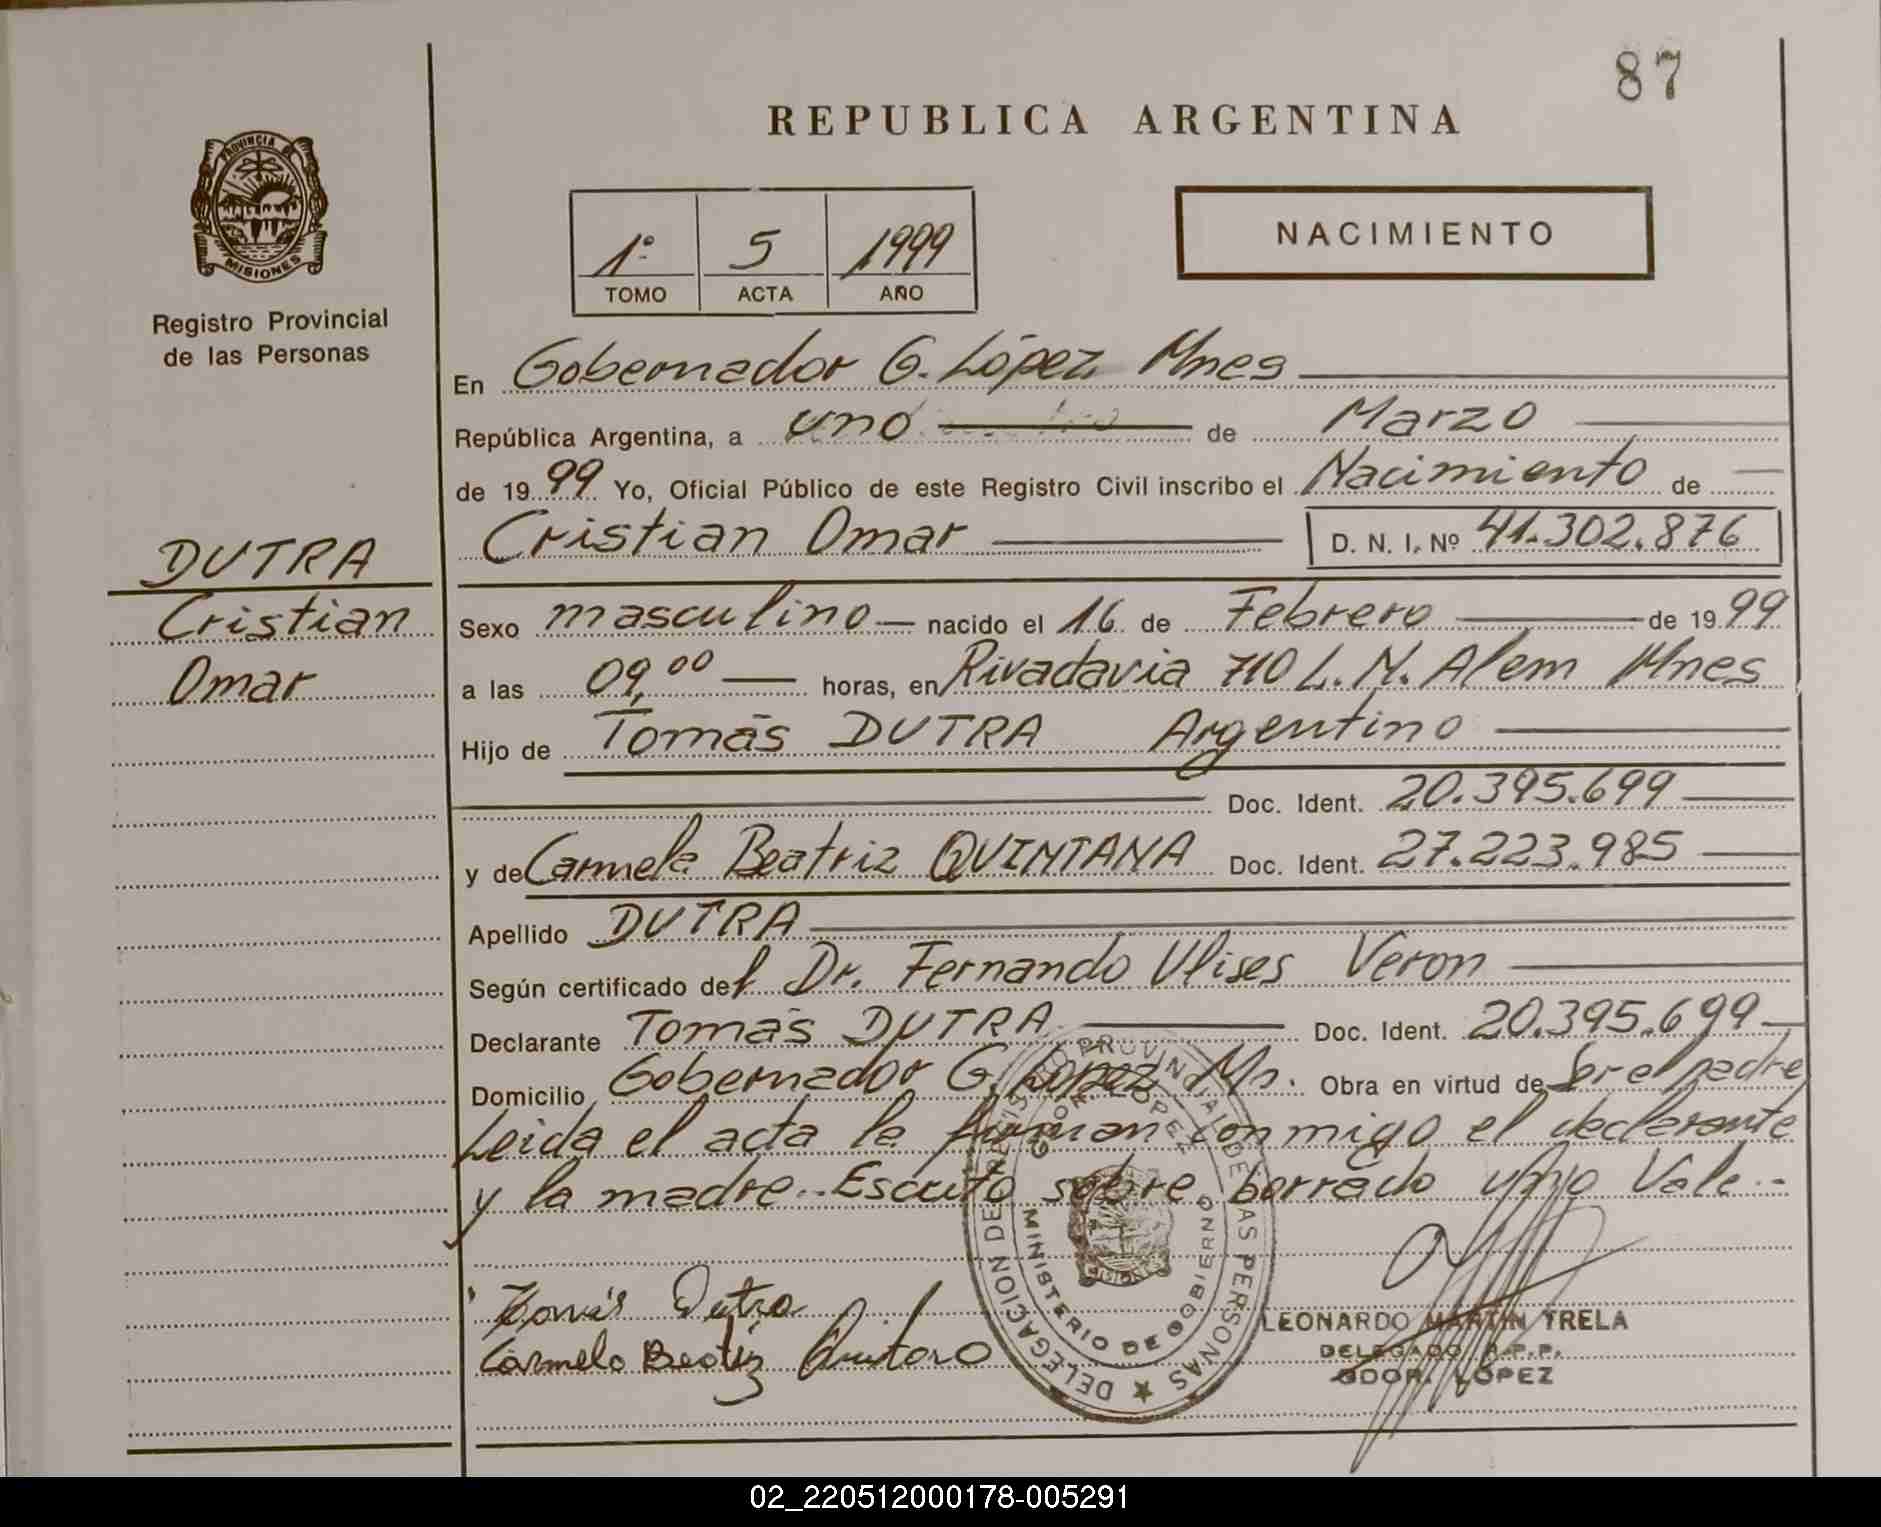 87
REPUBLICA ARGENTINA
PROVINCIA DE
MISIONES
Registro Provincial
de las Personas
1º 5 1999
TOMO ACTA AÑO
NACIMIENTO
En Gobernador G. López Mnes
República Argentina, a uno de Marzo
de 19 99 Yo, Oficial Público de este Registro Civil inscribo el Nacimiento de
Cristian Omar D. N. I. Nº 41.302.876
DUTRA
Cristian
Omar
Sexo masculino nacido el 16 de Febrero de 19 99
a las 09,00 horas, en Rivadavia 710 L. N. Alem Mnes
Hijo de Tomás DUTRA Argentino
Doc. Ident. 20.395.699
y de Carmela Beatriz QUINTANA Doc. Ident. 27.223.985
Apellido DUTRA
Según certificado del Dr. Fernando Ulises Veron
Declarante Tomás DUTRA Doc. Ident. 20.395.699
Domicilio Gobernador G. López Mns. Obra en virtud de Ser el padre
Leida el acta la firman conmigo el declarante
y la madre.. Escrito sobre borrado uno Vale.-
Tomás Dutra
Carmela Beatriz
DELEGACION DE REGISTRO PROVINCIAL DE LAS PERSONAS
GDOR. LOPEZ
MINISTERIO DE GOBIERNO
MISIONES
LEONARDO MARTIN TRELA
DELEGADO R.P.P.
GDOR. LOPEZ
02_220512000178-005291